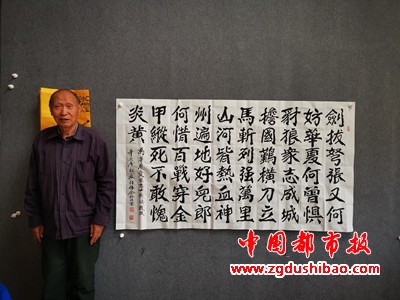 劍拔弩張又何
妨華夏何曾惧
豺狼衆志成城
擔國難横刀立
馬斬列强萬里
山河皆熱血神
州遍地好兒郎
何惜百戰穿金
甲縱死不敢愧
炎黄
中國都市报
www.zgdushibao.com